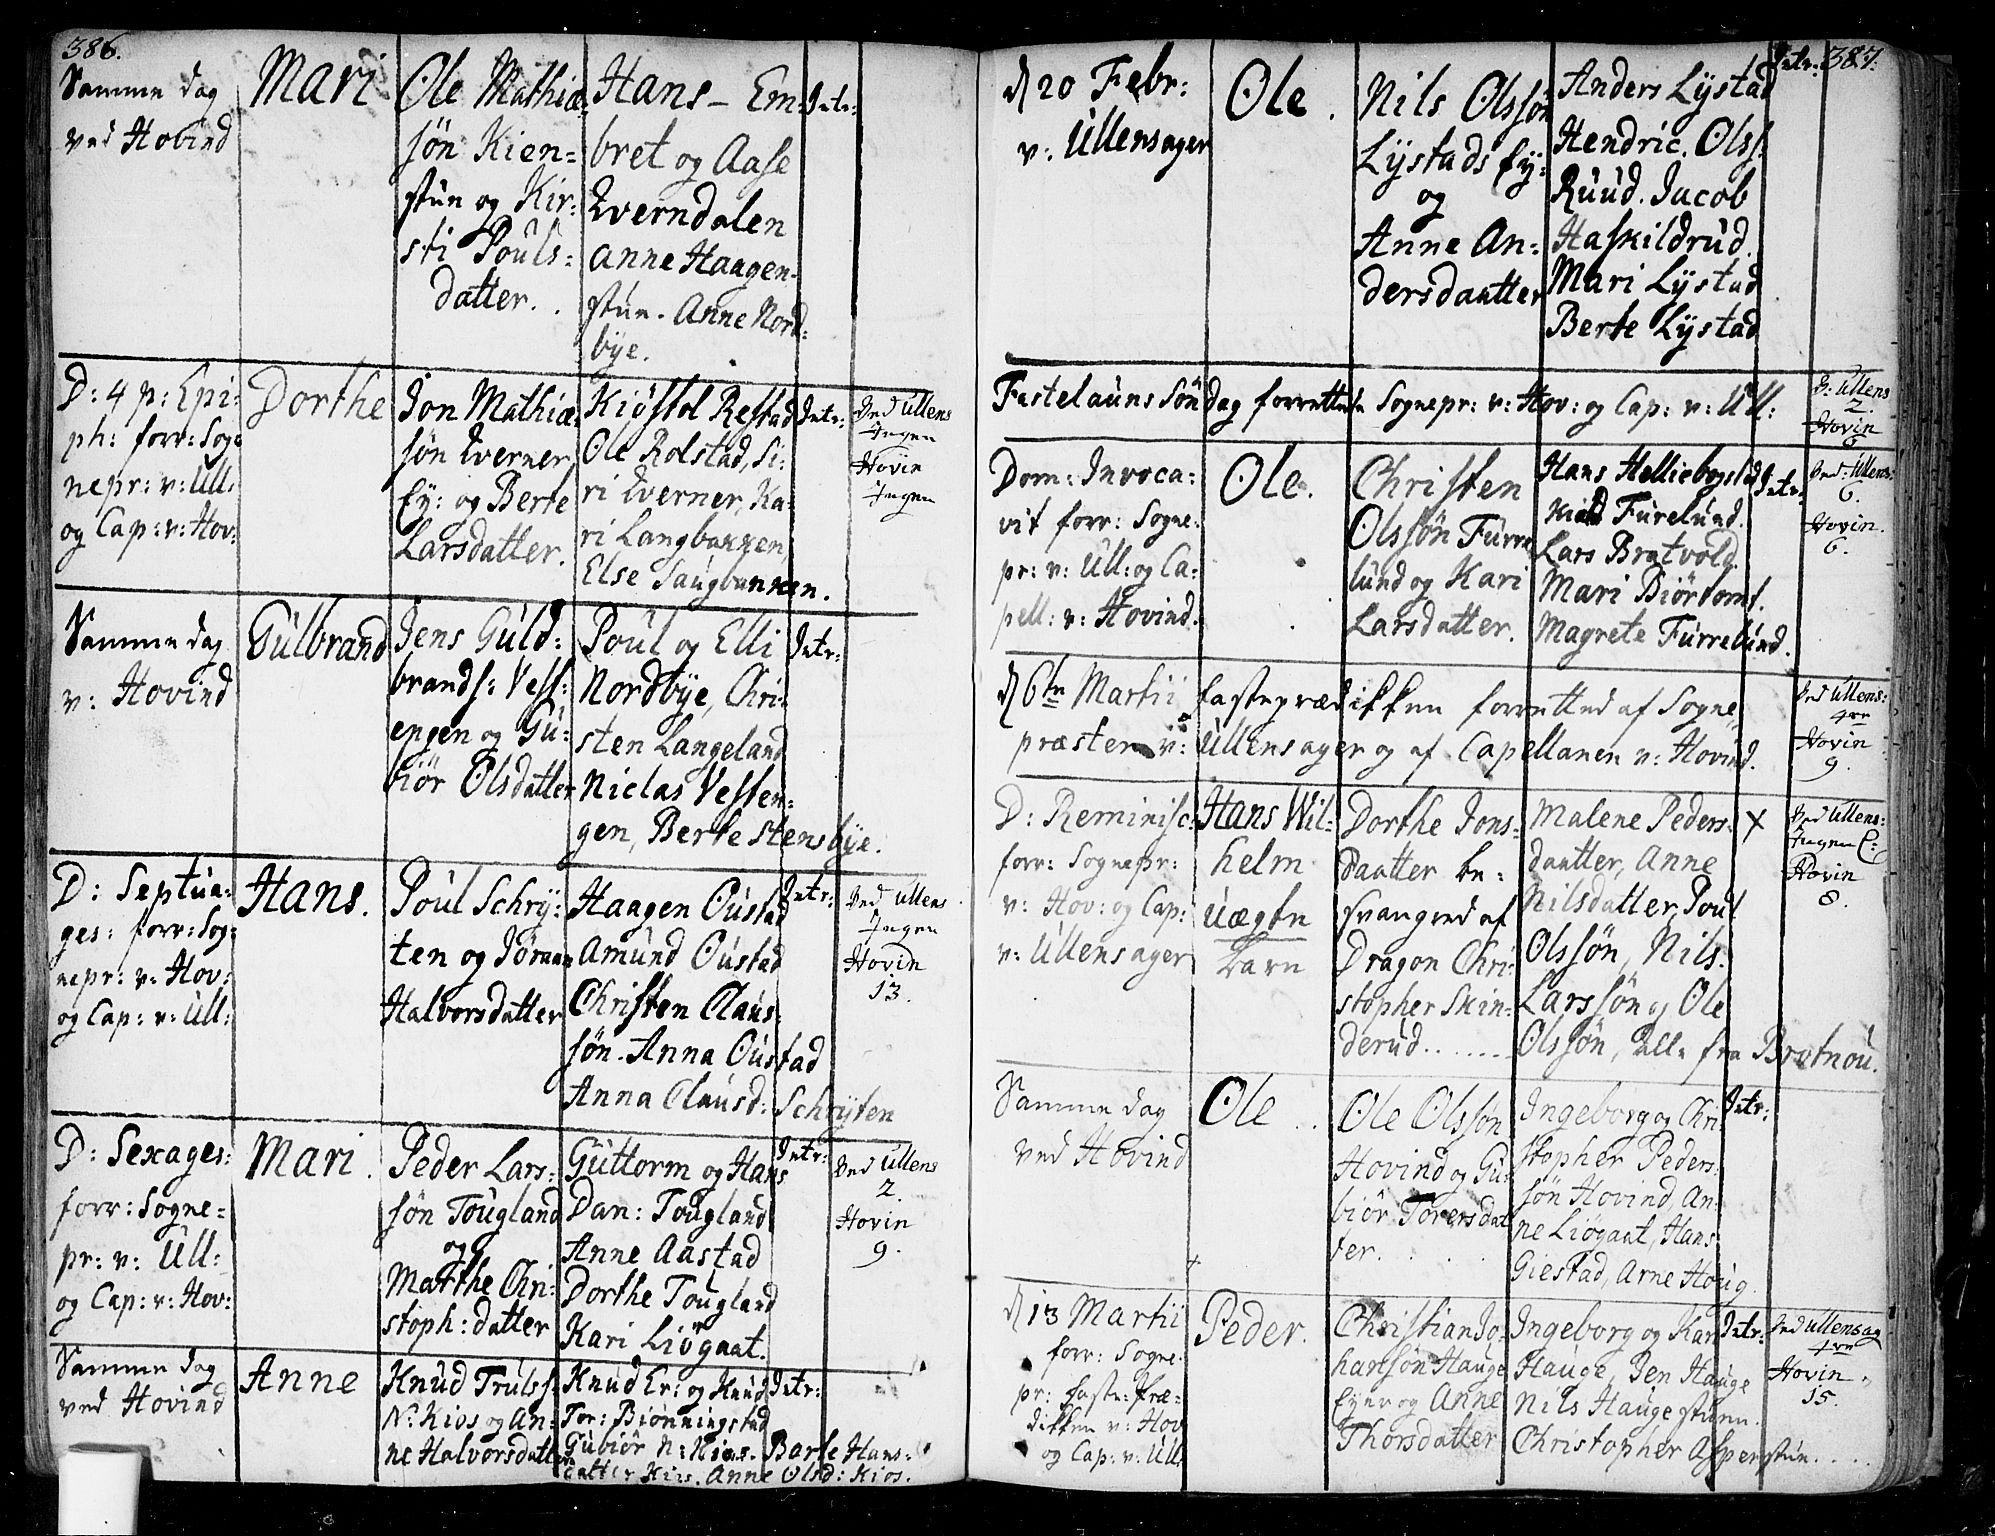 386.
Samme dag
ved Hovind
Mari
Ole Mathiæ
sön Kien=
stün og Kir=
sti Pouls=
datter.
Hans - Em=
bret og Aase
Qverndalen
Anne Haagen=
stün. Anne Nord=
bÿe.
Intr:
D: 4 p: Epi=
ph: forr: Sog=
nepr: v: Ull:
og Cap: v: Hov:
Dorthe
Jon Mathiæ=
sön Qverner
Eÿ: og Berte
Larsdatter.
Kiöstol Restad
Ole Rolstad, Si=
ri Qverner, Ka=
ri Langbakken,
Else Saugbanken.
Intr:
Ved Ullens
Ingen
Hovin
Ingen
Samme dag
v: Hovind
Gülbrand
Jens Güld=
brands: Vess=
engen og Gü=
biör Olsdatter
Poül og Elli
Nordbÿe, Chri=
sten Langeland
Niclas Vessen=
gen, Berte Stensbÿe.
Intr:
D: Septua=
ges: forr: Sog=
nepr: v: Hov:
og Cap: v: Ull:
Hans.
Poül Schrÿ=
ten og Jöran
Halvorsdatter
Haagen Oustad
Amund Oustad
Christen Claus=
sön. Anna Oustad
Anna Clausd: Schrÿten
Intr:
Ved Ullens
Ingen
Hovin
13.
D: Sexages:
forr: Sogne=
pr: v: Ull:
og Cap: v: Hov:
Mari.
Peder Lars=
sön Tougland
og
Marthe Chri=
stoph: datter
Guttorm og Hans
Dan: Tougland
Anne Aastad
Dorthe Tougland
Kari Liögaat.
Intr:
Ved Ullens
2.
Hovin
9.
Samme dag
ved Hovind
Anne
Knüd Trülss:
N: Kios og An=
ne Halvorsdatter
Knüd Er: og Knüd
Tor: Biönningstad
Gübiör N: Kios. Barte Hans=
datter Kios. Anne Olsd: Kios.
Intr:
387.
d 20 Febr:
v: Ullensager
Ole.
Nils Olssön
Lÿstads Eÿ:
og
Anne An=
dersdaatter
Anders Lÿstad
Hendric. Olss.
Rüüd. Jacob
Haskildrud.
Mari Lÿstad
Berte Lÿstad
Intr:
Fastelauns Söndag forrettede Sognepr: v: Hov: og Cap: v: Ull:
V: Ullens
2.
Hovin
6
Dom: Invoca=
vit forr: Sogne=
pr: v: Ull: og Ca=
pell: v: Hovind.
Ole.
Christen
Olssön Fürre
lünd og Kari
Larsdatter.
Hans Helliebogstad
Fürelünd.
Lars Bratvold.
Mari Biörtomt.
Magrete Fürrelünd.
Intr:
Ved Ullens:
6.
Hovin.
6.
d 6te Martii fasteprædikken forretted af Sogne=
præsten v: Ullensager og af Capellanen v: Hovind.
Ved Ullens:
4re
Hovin
9.
D: Reminisc:
forr: Sognepr:
v: Hov: og Cap:
v: Ullensager
Hans Wil=
helm
Uægte
Barn
Dorthe Jons=
Daatter be=
svangred af
Dragon Chri=
stopher Skin=
derud.......
Malene Peders=
daatter, Anne
Nilsdatter, Poul
Olssön, Nils
Larssön og Ole
Olssön, alle fra Bratnou.
X
Ved Ullens:
Ingen C:
Hovin
8.
Samme dag
ved Hovind
Ole..
Ole Olssön
Hovind og Gü=
biör Torersdat
ter.
Ingeborg og Chri
stopher Peders=
sön Hovind, An=
ne Liögaat, Hans
Giestad, Arne Houg.
Intr:
d 13 Martii
forr: Sogne=
pr: faste-Præ=
dikken v: Hov
og Cap: v: Ull.
Peder.
Christian Jo=
hansön Hauge
Eÿer og Anne
Thorsdatter
Ingeborg og Kari
Hauge, Jen Hauge
Nils Haugestuen.
Christopher Aspenstün....
Intr:
Ved Ullensag
4re
Hovin
15.